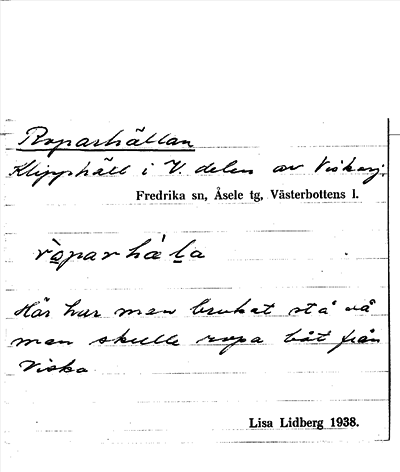 Roparhällan
Klipphäll i V. delen av Viskasj.
Fredrika sn, Åsele tg, Västerbottens l.
ròparhä́la
Här har man brukat stå då
man skulle ropa båt från
Viska
Lisa Lidberg 1938.